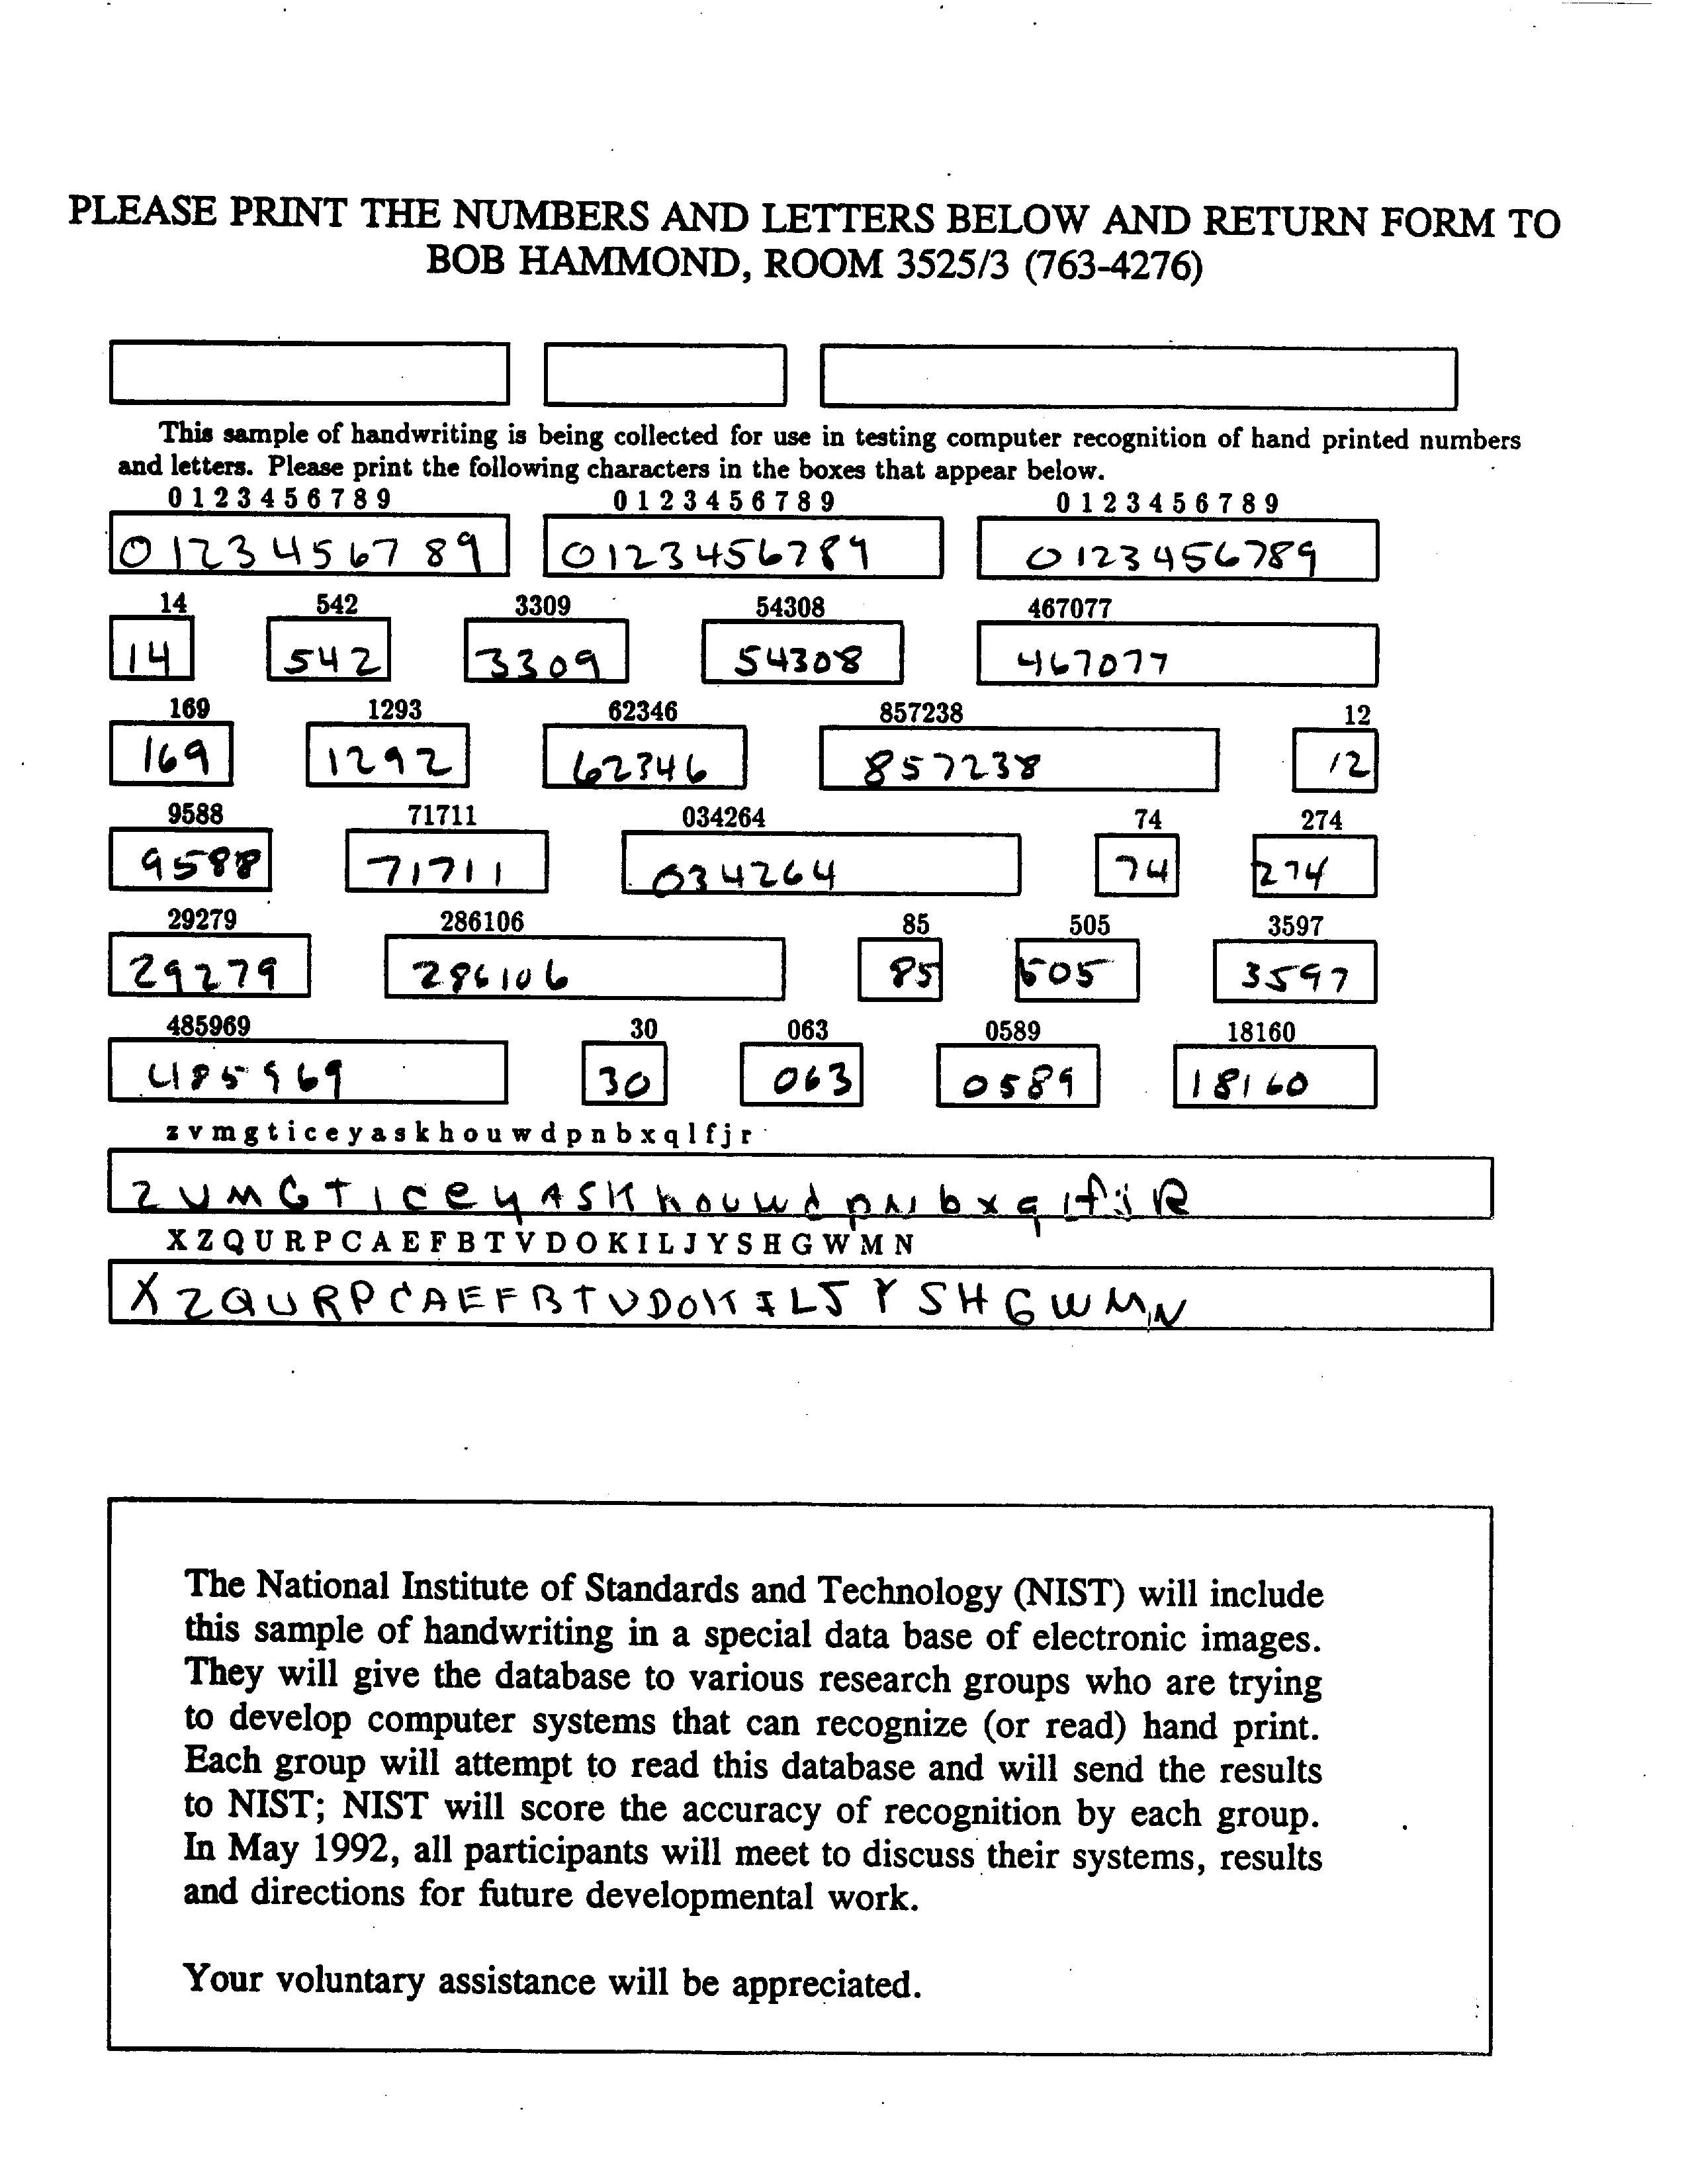 PLEASE PRINT THE NUMBERS AND LETTERS BELOW AND RETURN FORM TO
BOB HAMMOND, ROOM 3525/3 (763-4276)
This sample of handwriting is being collected for use in testing computer recognition of hand printed numbers
and letters. Please print the following characters in the boxes that appear below.
0 1 2 3 4 5 6 7 8 9 0 1 2 3 4 5 6 7 8 9 0 1 2 3 4 5 6 7 8 9
0123456789 0123456789 0123456789
14 542 3309 54308 467077
14 542 3309 54308 467077
169 1293 62346 857238 12
169 1292 62346 857238 12
9588 71711 034264 74 274
9588 71711 034264 74 274
29279 286106 85 505 3597
29279 286106 85 505 3597
485969 30 063 0589 18160
485969 30 063 0589 18160
z v m g t i c e y a s k h o u w d p n b x q l f j r
z v M G T I C e y A S K h o u w d p N b x q l f j R
X Z Q U R P C A E F B T V D O K I L J Y S H G W M N
X Z Q U R P C A E F B T V D O K I L J Y S H G W M N
The National Institute of Standards and Technology (NIST) will include
this sample of handwriting in a special data base of electronic images.
They will give the database to various research groups who are trying
to develop computer systems that can recognize (or read) hand print.
Each group will attempt to read this database and will send the results
to NIST; NIST will score the accuracy of recognition by each group.
In May 1992, all participants will meet to discuss their systems, results
and directions for future developmental work.
Your voluntary assistance will be appreciated.